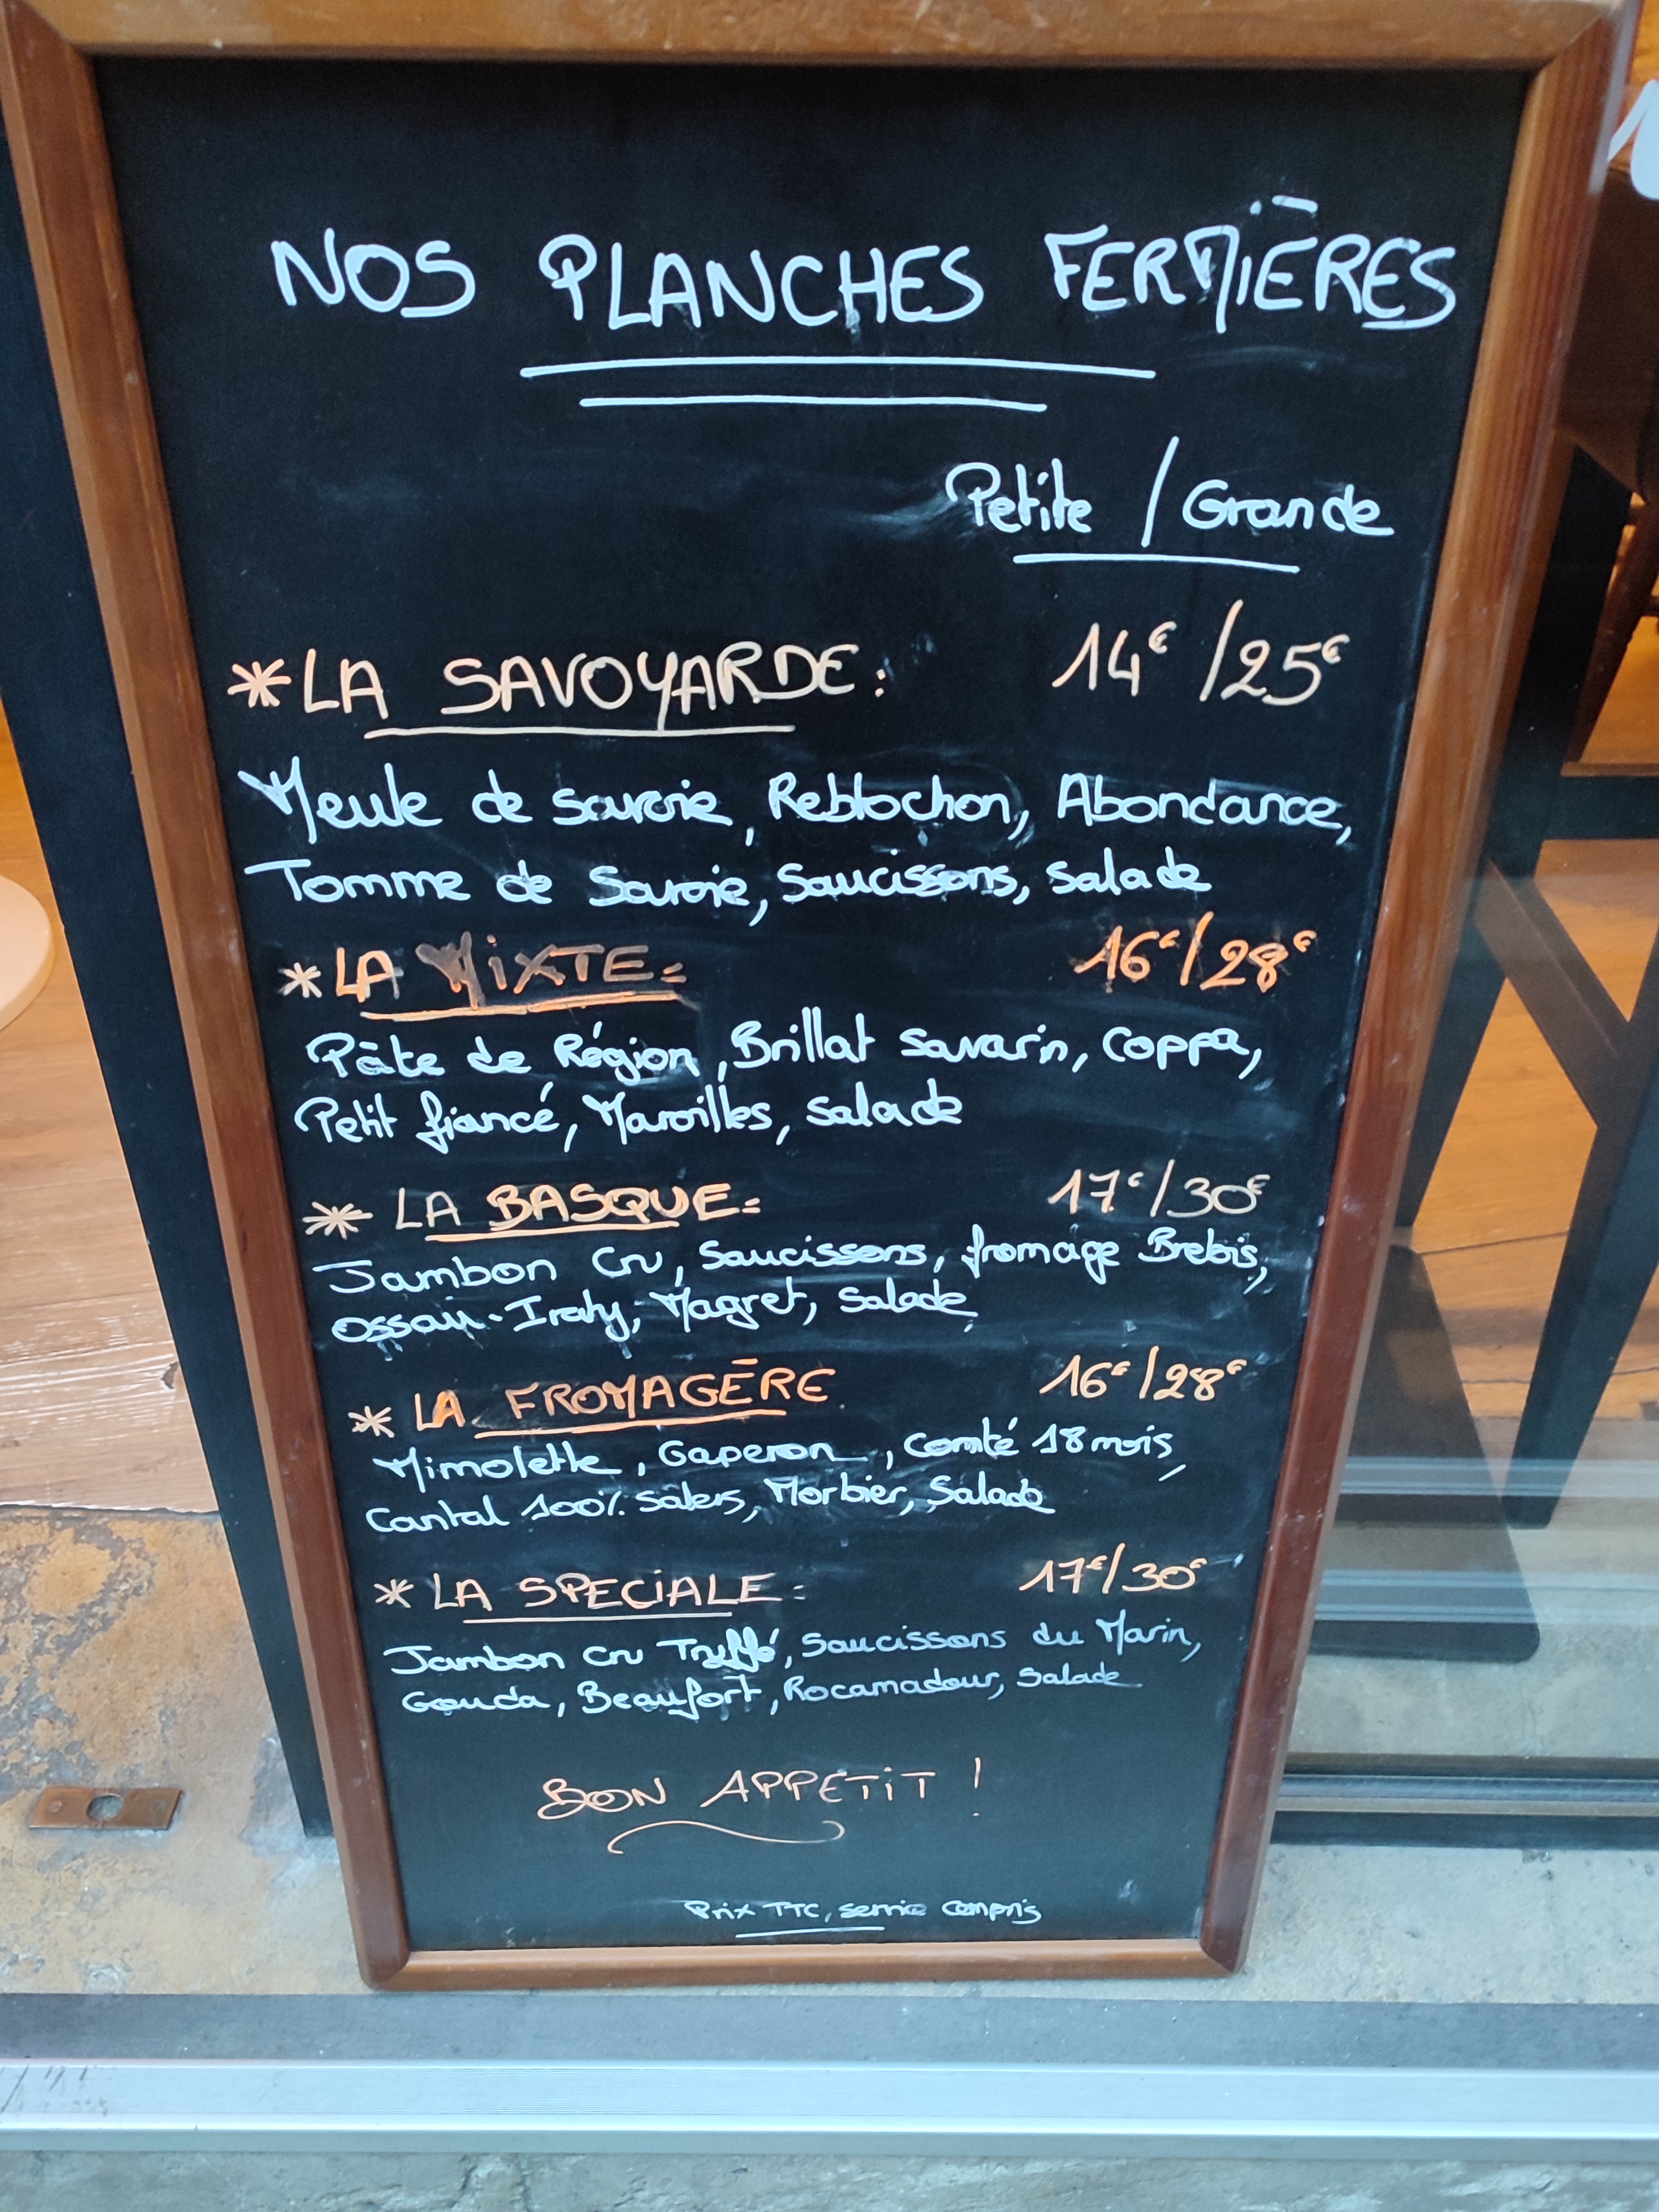 NOS PLANCHES FERMIÈRES
Petite / Grande
*LA SAVOYARDE: 14€ /25€
Meule de Savoie, Reblochon, Abondance,
Tomme de Savoie, Saucissons, Salade
*LA MIXTE: 16€/28€
Pâte de Région, Brillat Savarin, Coppa,
Petit fiancé, Maroilles, Salade
* LA BASQUE: 17€/30€
Jambon Cru, Saucissons, fromage Brebis,
Ossau-Iraty, Magret, Salade
* LA FROMAGÈRE 16€/28€
Mimolette, Gaperon, Comté 18 mois,
Cantal 100% Salers, Morbier, Salade
* LA SPECIALE: 17€/30€
Jambon Cru Truffé, Saucissons du Marin,
Gouda, Beaufort, Rocamadour, Salade
BON APPETiT !
Prix TTC, service compris